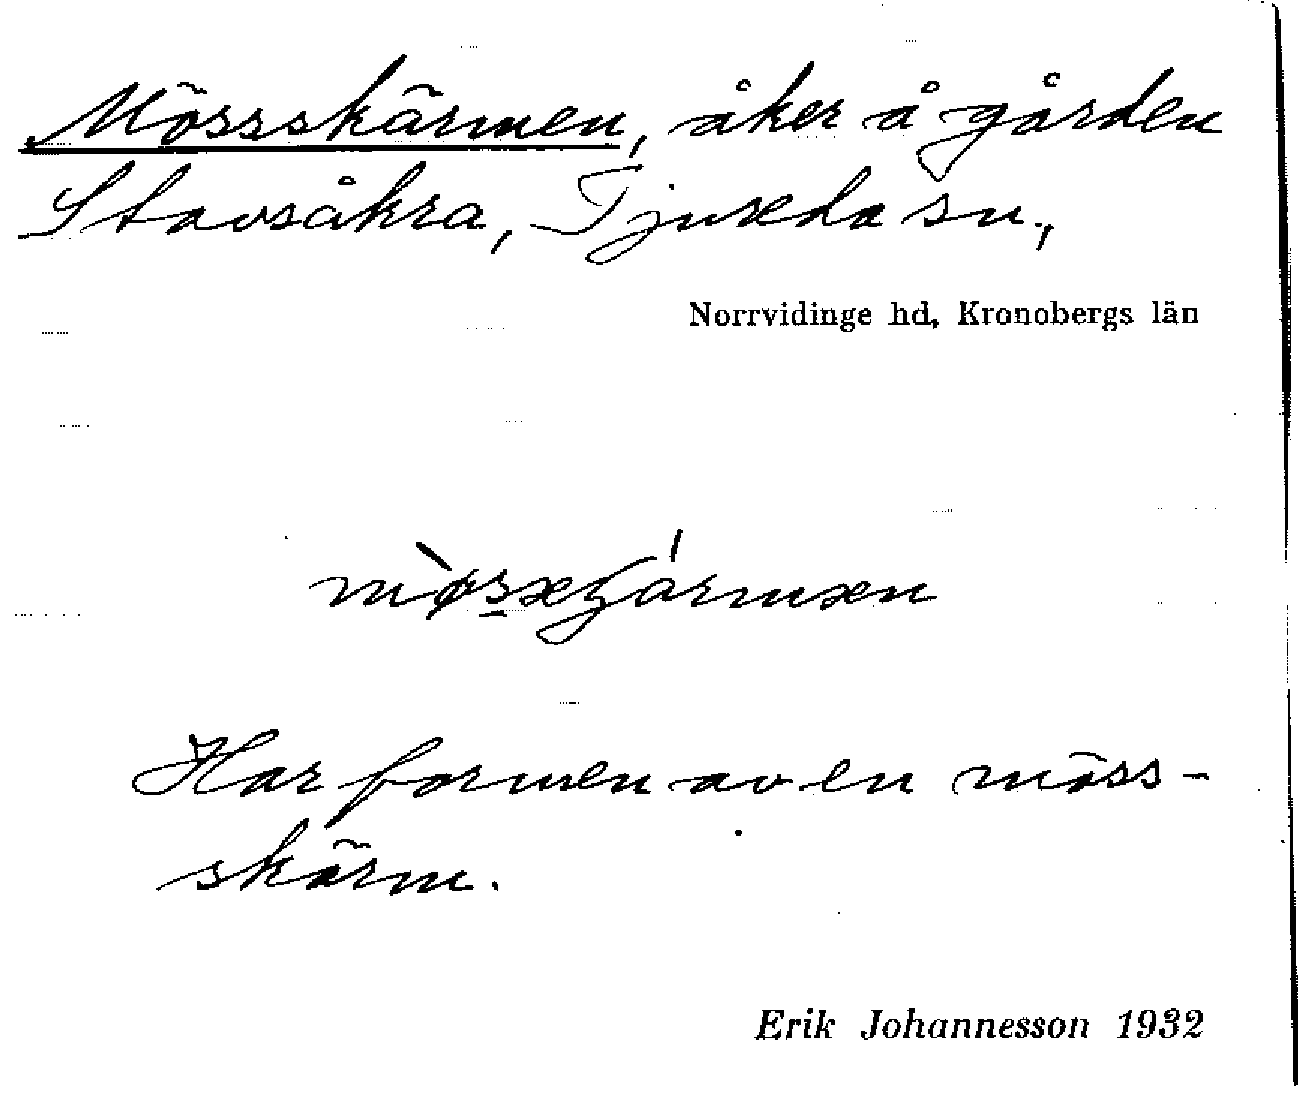 Mössskärmen, åker å gården
Stavsåkra, Tjureda sn.,
Norrvidinge hd, Kronobergs län
Har formen av en möss-
skärm.
Erik Johannesson 1932